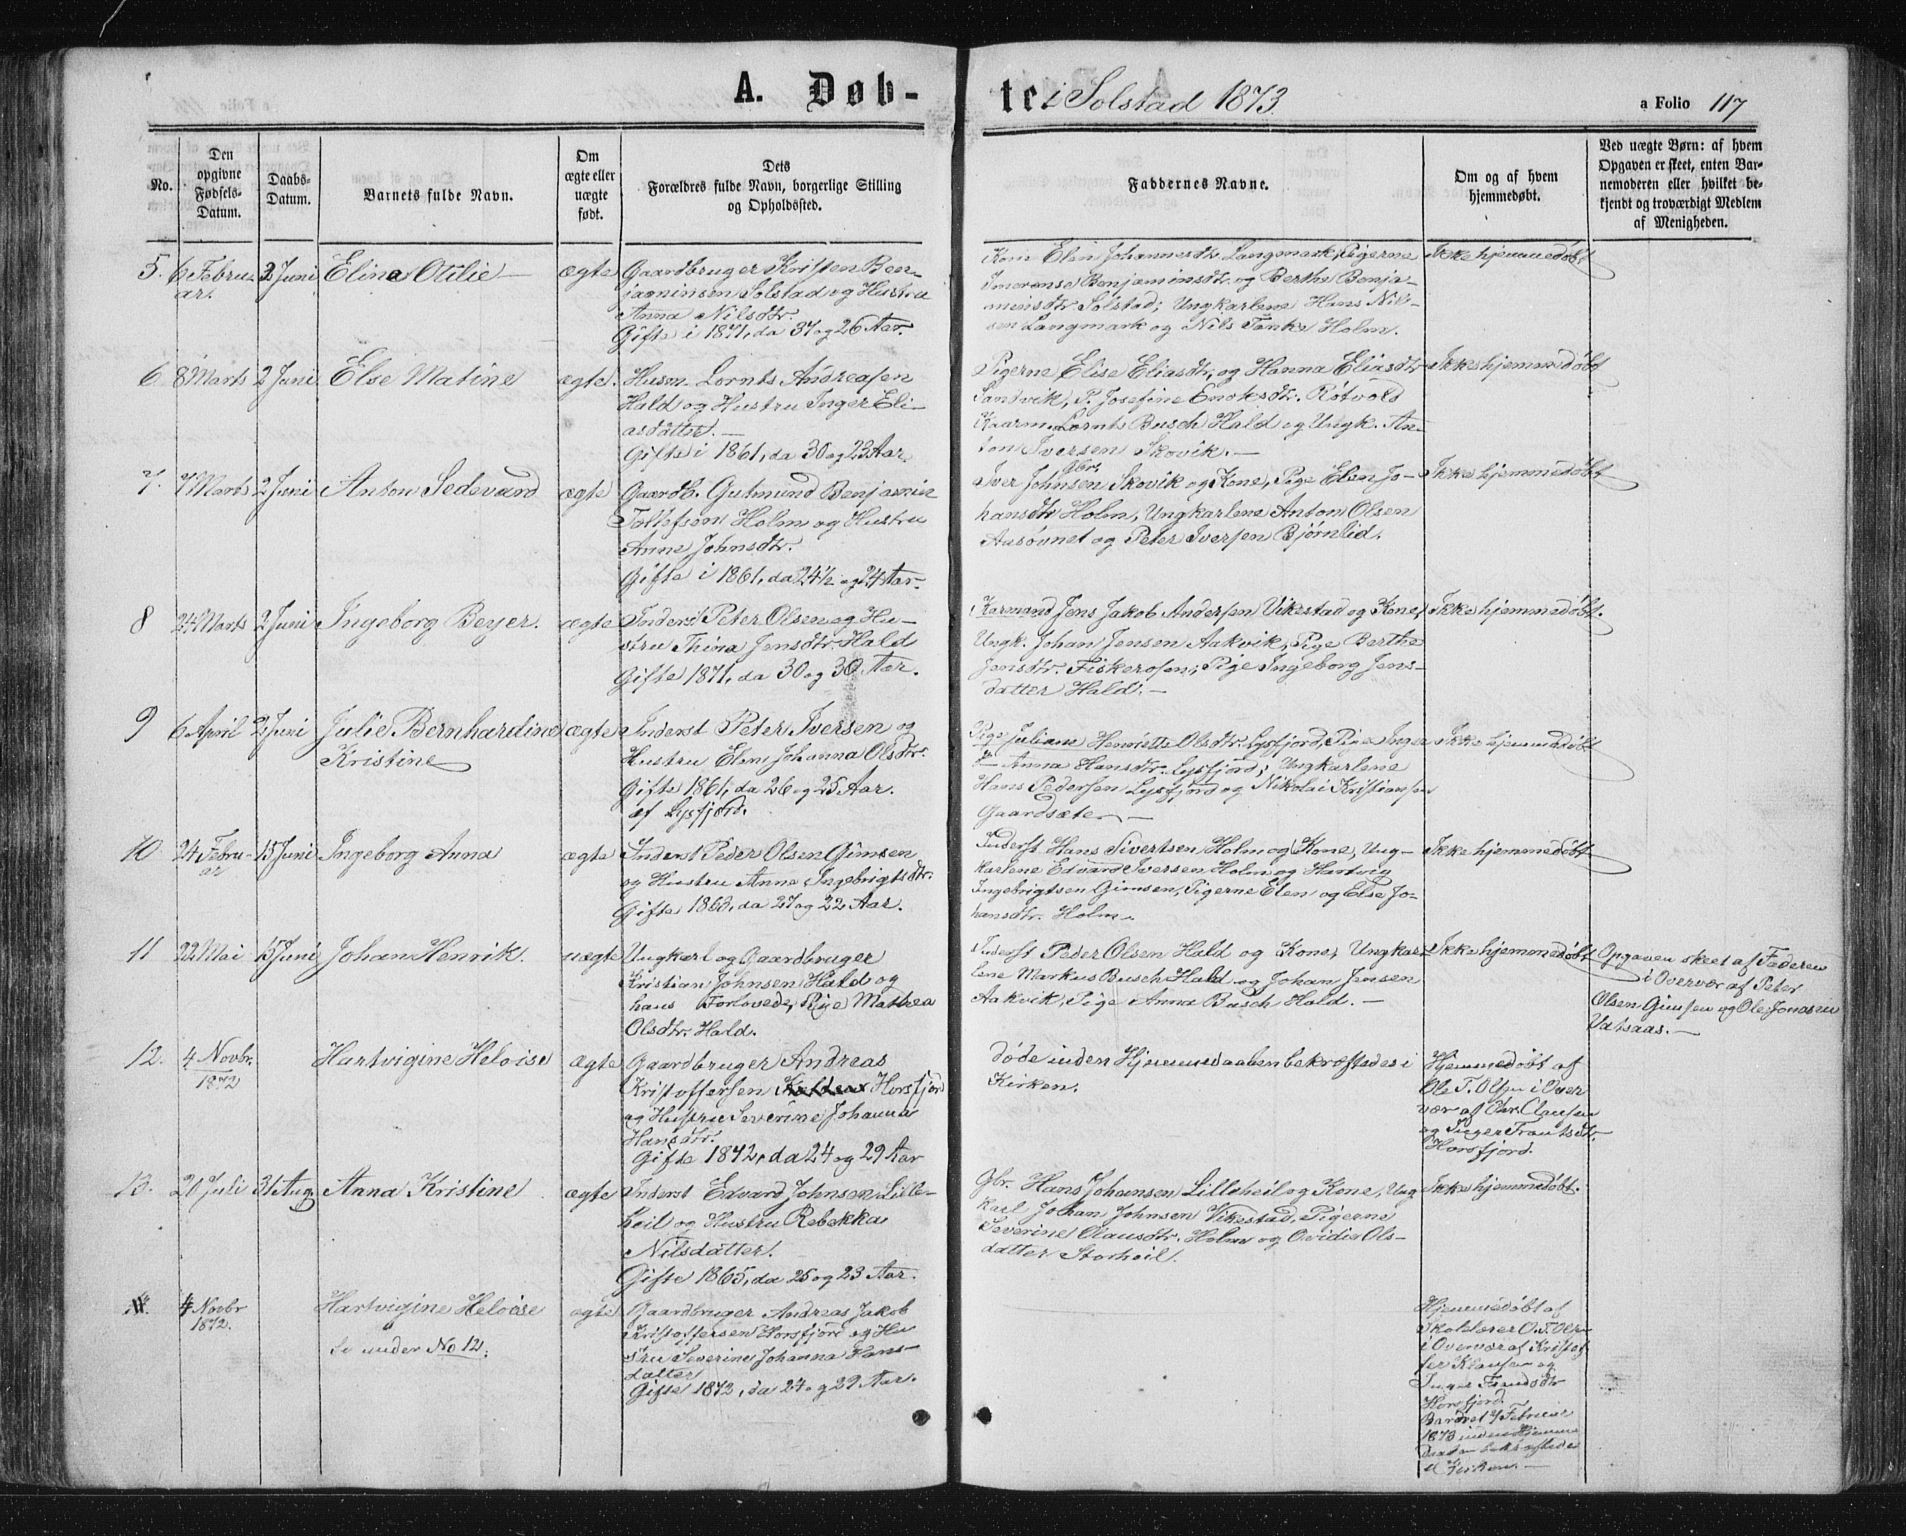 A. Døb-
te i Solstad 1873.
a Folio 117
No.
Den
opgivne
Fødsels-
Datum.
Daabs-
Datum.
Barnets fulde Navn.
Om
ægte eller
uægte
født.
Dets
Forældres fulde Navn, borgerlige Stilling
og Opholdssted.
Faddernes Navne.
Om og af hvem
hjemmedøbt.
Ved uægte Børn: af hvem
Opgaven er skeet, enten Bar-
nemoderen eller hvilket be-
kjendt og troværdigt Medlem
af Menigheden.
5. 6 Febru-
ar.
2 Juni
Elina Otilie
ægte
Gaardbruger Kristen Ben-
jaminsen Solstad og Hustru
Anna Nilsdtr.
Gifte i 1871, da 37 og 26 Aar.
Kone Elen Johannesdtr. Langmark, Pigerne
Imerense Benjaminsdtr. og Berthe Benja-
minsdtr Solstad; Ungkarlene Hans Nil-
sen Langmark og Nils Tanke Holm.
Ikke hjemmedøbt
6 8 Marts 2 Juni
Else Matine
ægte.
Husm. Lornts Andreasen
Hald og Hustru Inger Eli-
asdatter.
Gifte i 1861, da 30 og 23 Aar.
Pigerne Elise Eliasdtr. og Hanna Eliasdtr
Sandvik, P. Josefine Enoksdtr. Røtvold
Kaarm. Lornts Busch Hald og Ungk. An-
ton Iversen Skovik.
Ikke hjemmedøbt
7. 7 Marts 2 Juni
Anton Sedevard
ægte
Gaardb. Gutmund Benjamin
Tollefsen Holm og Hustru
Anne Johnsdtr.
Gifte i 1861, da 24½ og 24 Aar.
Gbr.
Iver Johnsen Skovik og Kone, Pige Elen Jo-
hansdtr Holm, Ungkarlene Anton Olsen
Aasøvnet og Peter Iversen Bjørnlid.
Ikke hjemmedøbt
8 24 Marts 2 Juni
Ingeborg Beyer.
ægte
Inderst Peter Olsen og Hu-
stru Thina Jensdtr. Hald
Gifte 1871, da 30 og 30 Aar.
Karmand Jens Jakob Andersen Vikestad og Kone,
Ungk. Johan Jensen Aakvik, Pige Berthe
Jensdtr. Fiskerosen; Pige Ingeborg Jens-
datter Hald.
Ikke hjemmedøbt.
9 6 April 2 Juni
Julie Bernhardine
Kristine
ægte
Inderst Peter Iversen og
Hustru Elen Johanna Olsdtr.
Gifte 1861, da 26 og 25 Aar.
af Lysfjord.
Pige Juliane Henriette Olsdtr. Lysfjord, Pige Inger
Anna Hansdtr. Lysfjord; Ungkarlene
Hans Pedersen Lysfjord og Nikolai Kristiansen
Gaardsæter
Ikke hjemmedøbt
10 24 Febru-
ar
15 Juni
Ingeborg Anna
ægte
Inderst Peder Olsen Gimsen
og Hustru Anne Ingebrigtsdtr.
Gifte 1863, da 27 og 22 Aar.
Inderst Hans Sivertsen Holm og Kone, Ung-
karlene Edvard Iversen Holm og Hartvig
Ingebrigtsen Gimsen, Pigerne Elen og Else Jo-
hansdtr. Holm.
Ikke hjemmedøbt
11 22 Mai 15 Juni
Johan Henrik.
uægte
Ungkarl og Gaardbruger
Kristian Johnsen Hald og
hans Forlovede, Pige Mathea
Olsdtr. Hald.
Inderst Peder Olsen Hald og Kone, Ungkar-
lene Markus Busch Hald og Johan Jensen
Aakvik, Pige Anna Busch Hald.
Ikke hjemmedøbt
Opgaven skeet af Faderen
i Overvær af Peter
Olsen Gimsen og Ole Jonasen
Vatsaas.
12. 4 Novbr.
1872
Hartvigine Heloise
ægte
Gaardbruger Andreas
Kristoffersen Horsfjord
og Hustru Severine Johanna
Hansdtr.
Gifte 1872, da 24 og 29 Aar
døde inden Hjemmedaaben bekræftedes i
Kirken.
Hjemmedøbt af
Ole T. Olsen i Over
vær af Chr. Clausen
og Inger Trantsdtr.
Horsfjord.
13. 20 Juli 31 Aug.
Anna Kristine
ægte
Inderst Edvard Johnsen Lille-
heil og Hustru Rebekka
Nilsdatter.
Gifte 1865, da 25 og 23 Aar.
Gbr. Hans Johansen Lilleheil og Kone, Ung
karl Johan Johnsen Vikestad, Pigerne
Severine Olausdtr. Holm og Ovidia Ols-
datter Storheil.
Ikke hjemmedøbt.
4 Novbr
1872.
Hartvigine Heloise
Se under No 12.
ægte
Gaardbruger Andreas Jakob
Kristoffersen Horsfjord og Hu
stru Severine Johanna Hans-
datter
Gifte 1872, da 24 og 29 Aar.
Hjemmedøbt af
Skolelærer O. T. Olsen
i Overvær af Kristof
fer Klausen og
Inger
Horsfjord.
Barnet Februar
1873 inden Hjemme
daaben bekræftedes
i Kirken.